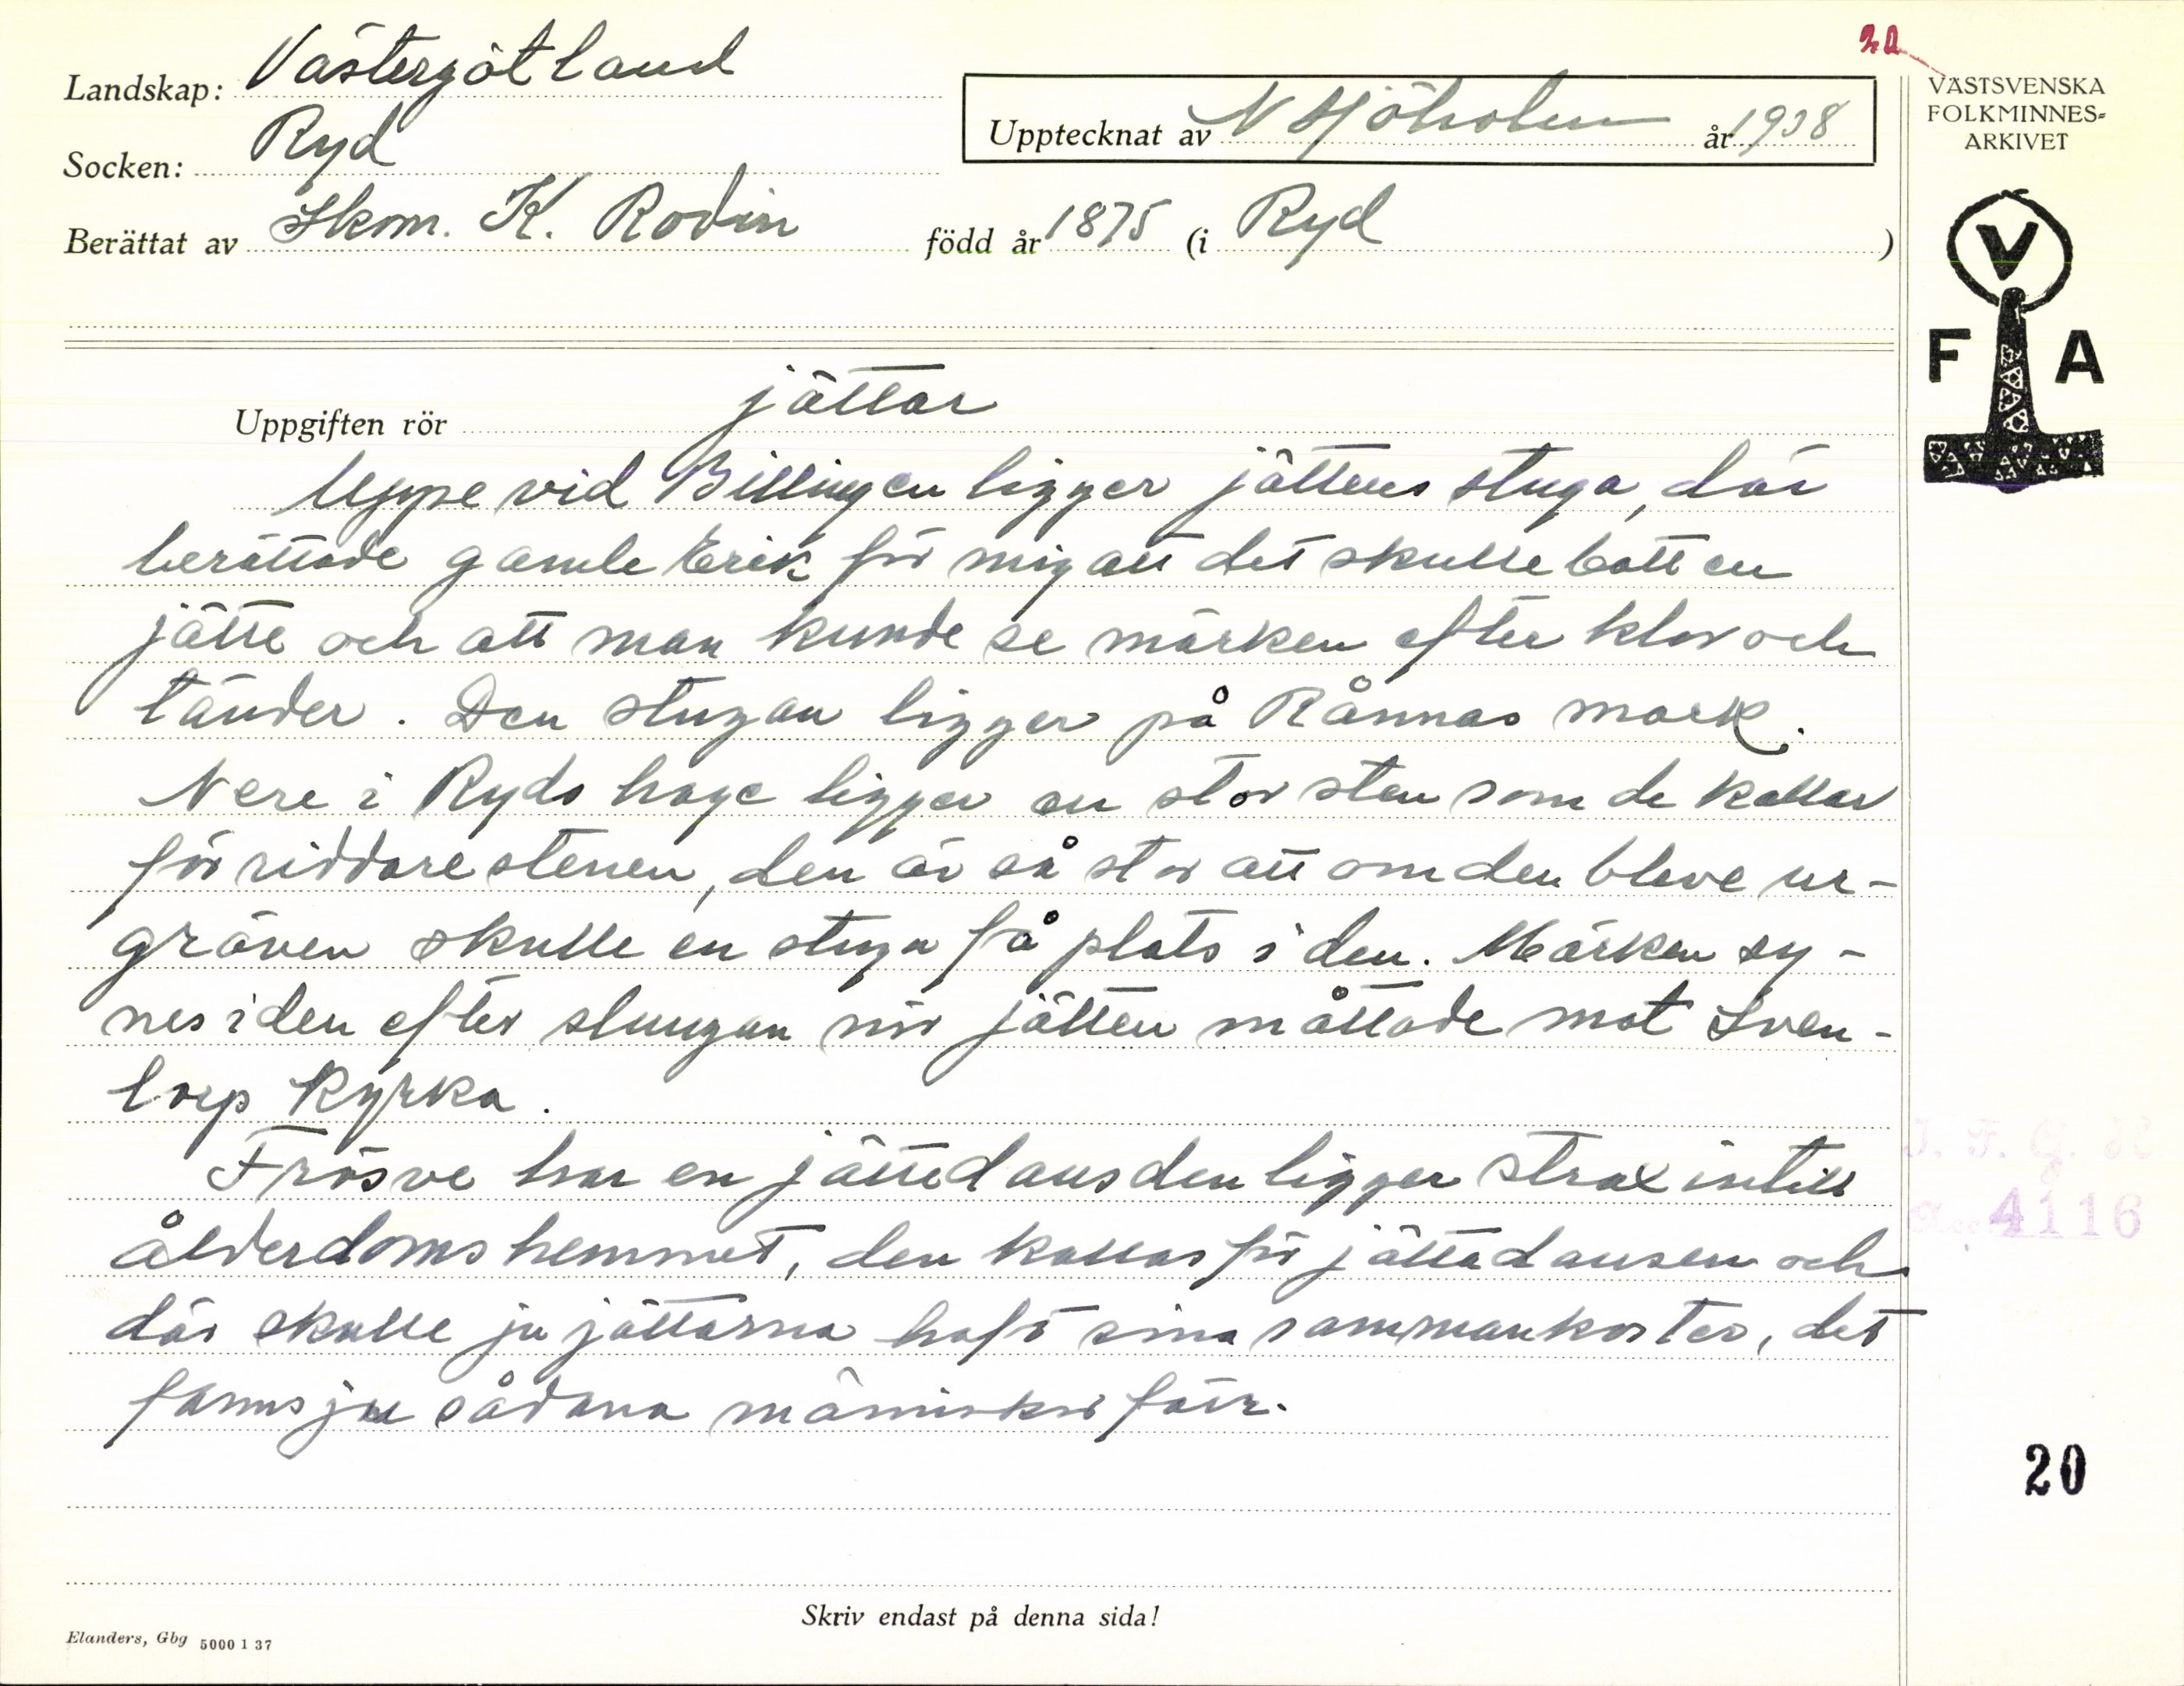 22
Landskap: Västergötland
Socken: Ryd
Upptecknat av N Sjöholm år 1938
Berättat av Skom. K. Rodin född år 1875 (i Ryd )
VÄSTSVENSKA
FOLKMINNES-
ARKIVET
V
F A
Uppgiften rör jättar
Uppe vid Billingen ligger jättens stuga, där
berättade gamle Erik för mig att det skulle bott en
jätte och att man kunde se märken efter klor och
tänder. Den stugan ligger på Rånnas mark.
Nere i Ryds hage ligger en stor sten som de kallar
för riddarestenen, den är så stor att om den bleve ur-
gräven skulle en stuga få plats i den. Märken sy-
nes i den efter slungan när jätten måttade mot Sven-
torp kyrka.
Frösve har en jättedans den ligger strax intill
ålderdomshemmet, den kallas för jättadansen och
där skulle ju jättarna haft sina sammankoster, det
fanns ju sådana människor förr.
I. F. G. H
Acc 4116
20
Skriv endast på denna sida!
Elanders, Gbg 5000 1 37